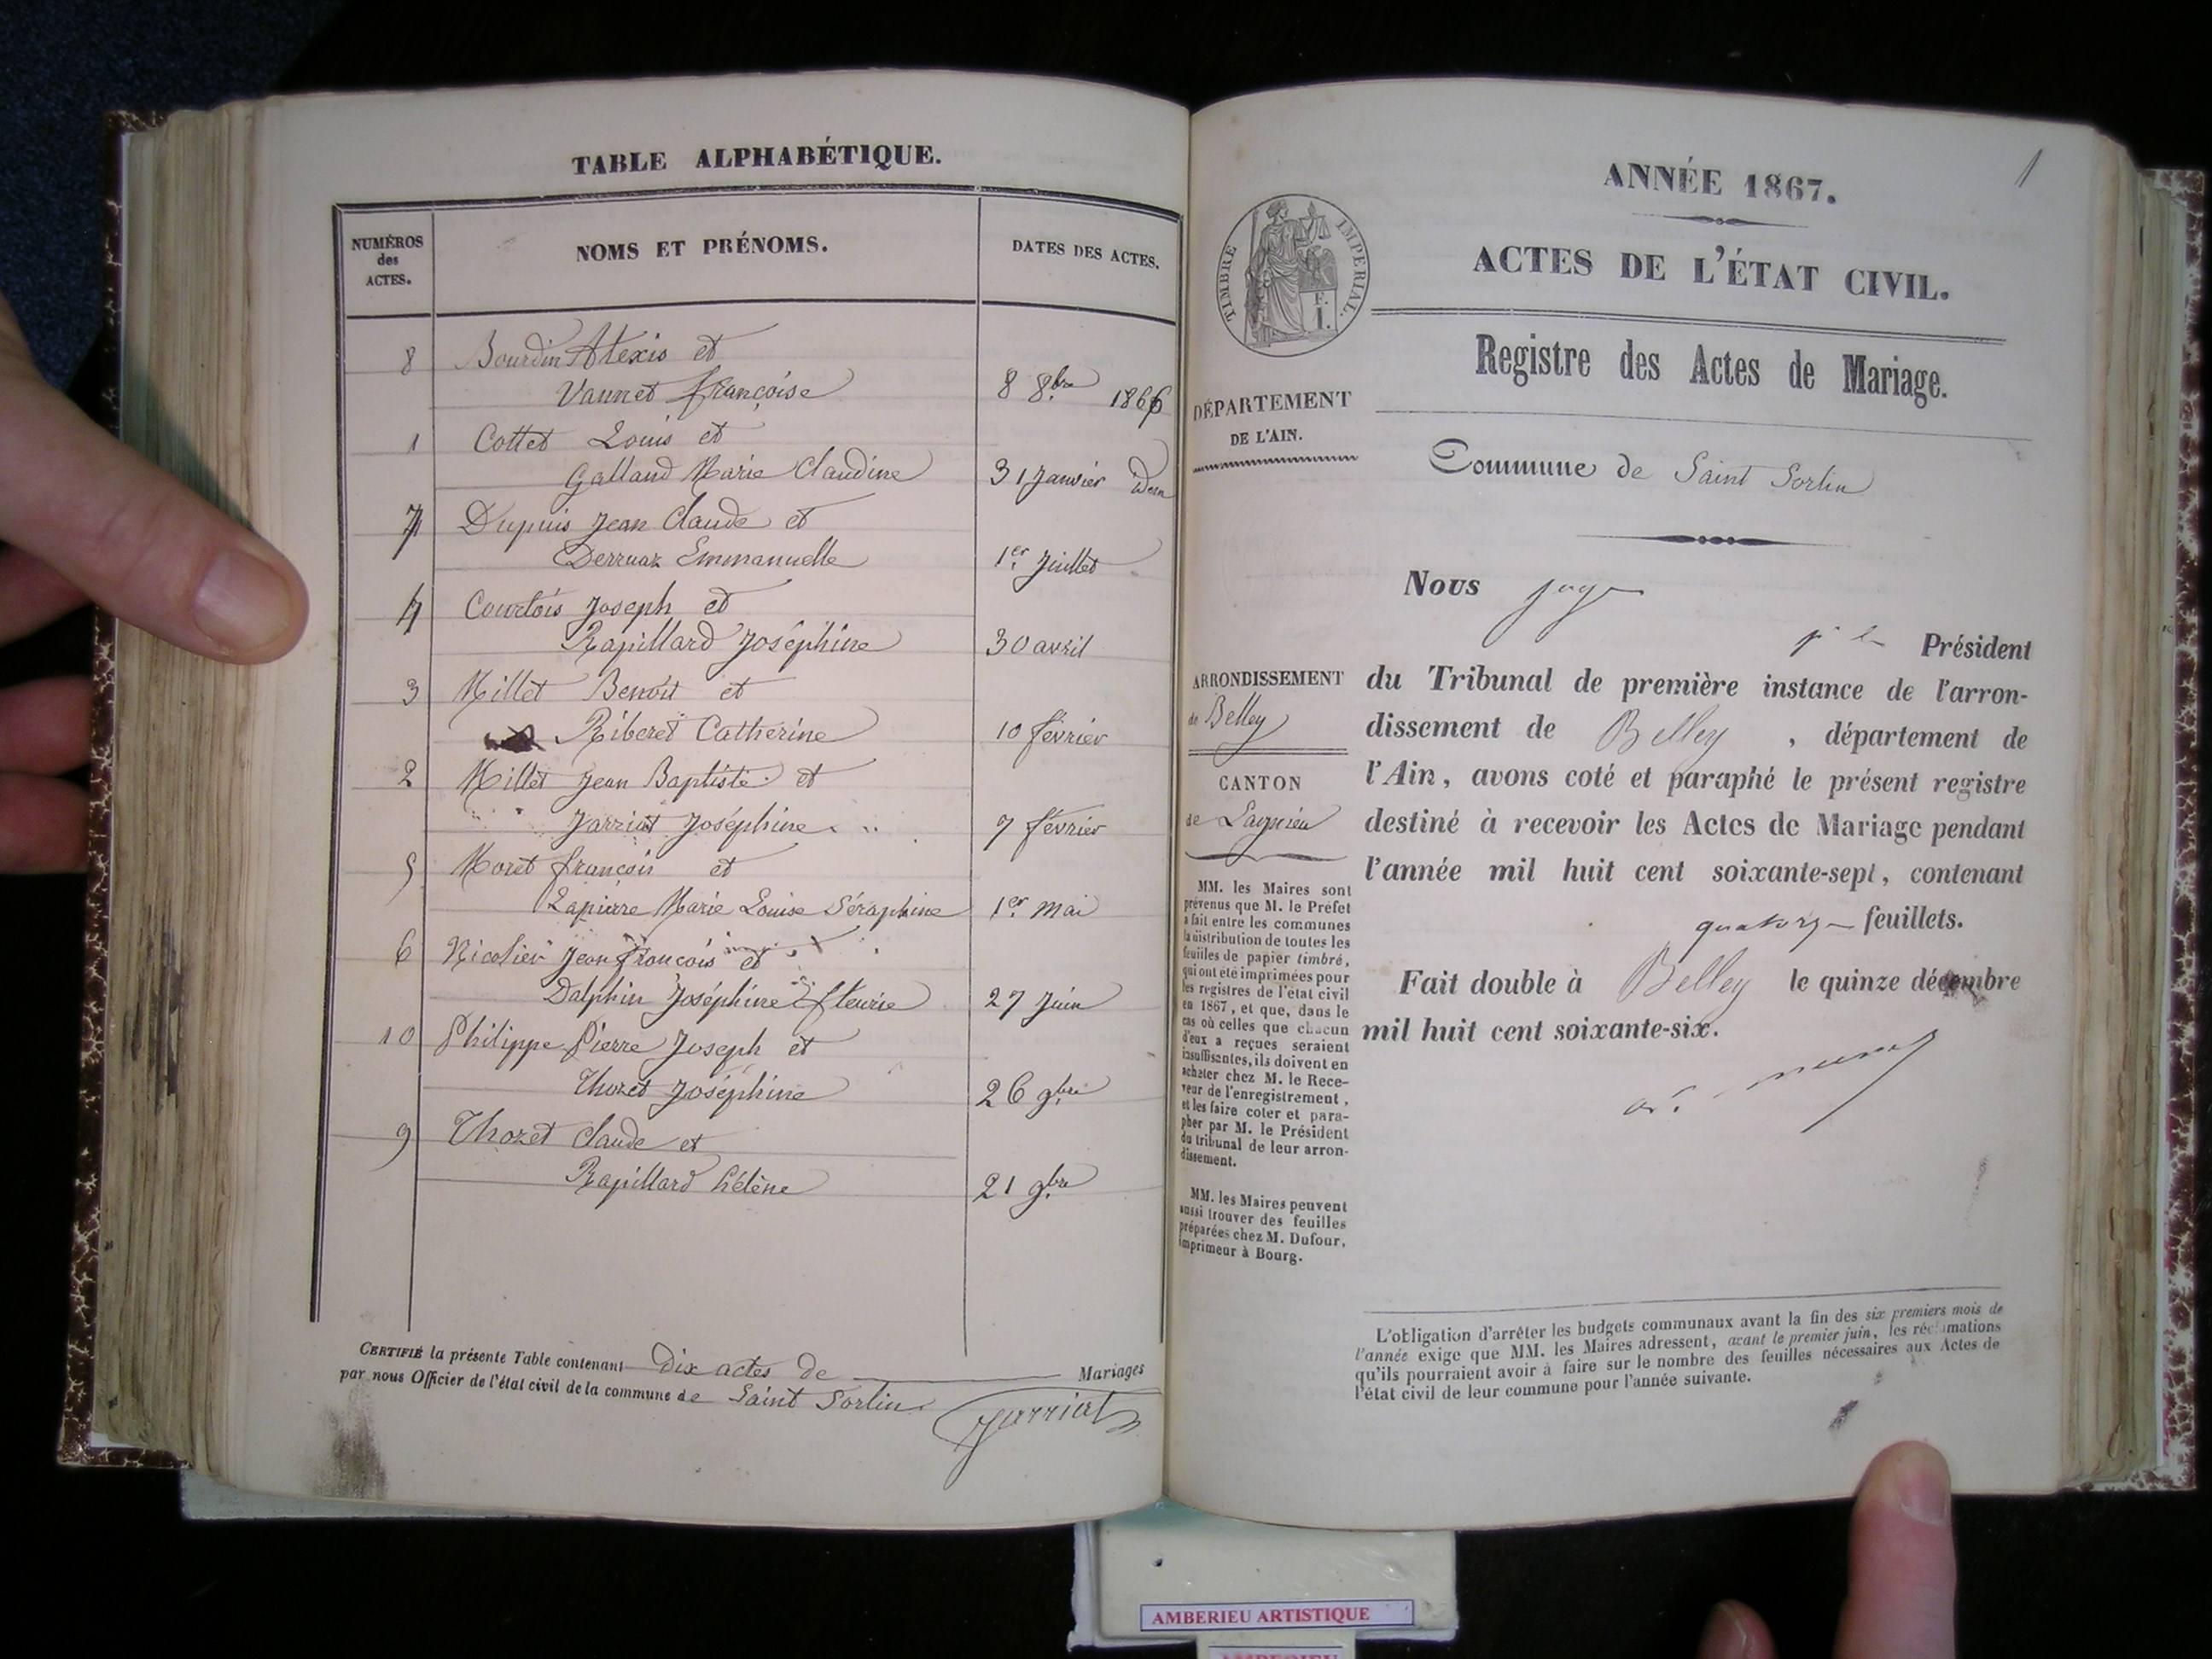 TABLE ALPHABÉTIQUE.
NUMÉROS
des
ACTES.
NOMS ET PRÉNOMS.
DATES DES ACTES.
8 Bourdin Alexis et
Vannet françoise 8 8bre 1866
1 Cottet Louis et
Galland Marie Claudine 31 Janvier Idem
7 Dupuis Jean Claude et
Derruaz Emmanuelle 1er Juillet
4 Courtois Joseph et
Rapillard Joséphine 30 avril
3 Millet Benoit et
Riberet Catherine 10 février
2 Millet Jean Baptiste et
Jarriat Joséphine 7 février
5 Moret françois et
Lapierre Marie Louise Séraphine 1er mai
6 Nicolier Jean françois et
Dalphin Joséphine fleurie 27 Juin
10 Philippe Pierre Joseph et
Thozet Joséphine 26 9bre
9 Thozet Claude et
Rapillard hélène 21 9bre
CERTIFIÉ la présente Table contenant Dix actes de Mariages
par nous Officier de l'état civil de la commune de Saint Sorlin
Jarriat
1
ANNÉE 1867.
ACTES DE L'ÉTAT CIVIL.
TIMBRE IMPÉRIAL.
F.
I.
Registre des Actes de Mariage.
DÉPARTEMENT
DE L'AIN.
Commune de Saint Sorlin
Nous juge
Président
du Tribunal de première instance de l'arron-
dissement de Belley, département de
l'Ain, avons coté et paraphé le présent registre
destiné à recevoir les Actes de Mariage pendant
l'année mil huit cent soixante-sept, contenant
quatorze feuillets.
Fait double à Belley le quinze décembre
mil huit cent soixante-six.
ARRONDISSEMENT
de Belley
CANTON
de Lagnieu
MM. les Maires sont
prévenus que M. le Préfet
a fait entre les communes
la distribution de toutes les
feuilles de papier timbré,
qui ont été imprimées pour
les registres de l'état civil
en 1867, et que, dans le
cas où celles que chacun
d'eux a reçues seraient
insuffisantes, ils doivent en
acheter chez M. le Rece-
veur de l'enregistrement,
et les faire coter et para-
pher par M. le Président
du tribunal de leur arron-
dissement.
MM. les Maires peuvent
aussi trouver des feuilles
préparées chez M. Dufour,
imprimeur à Bourg.
L'obligation d'arrêter les budgets communaux avant la fin des six premiers mois de
l'année exige que MM. les Maires adressent, avant le premier juin, les réclamations
qu'ils pourraient avoir à faire sur le nombre des feuilles nécessaires aux Actes de
l'état civil de leur commune pour l'année suivante.
AMBERIEU ARTISTIQUE
AMBERIEU